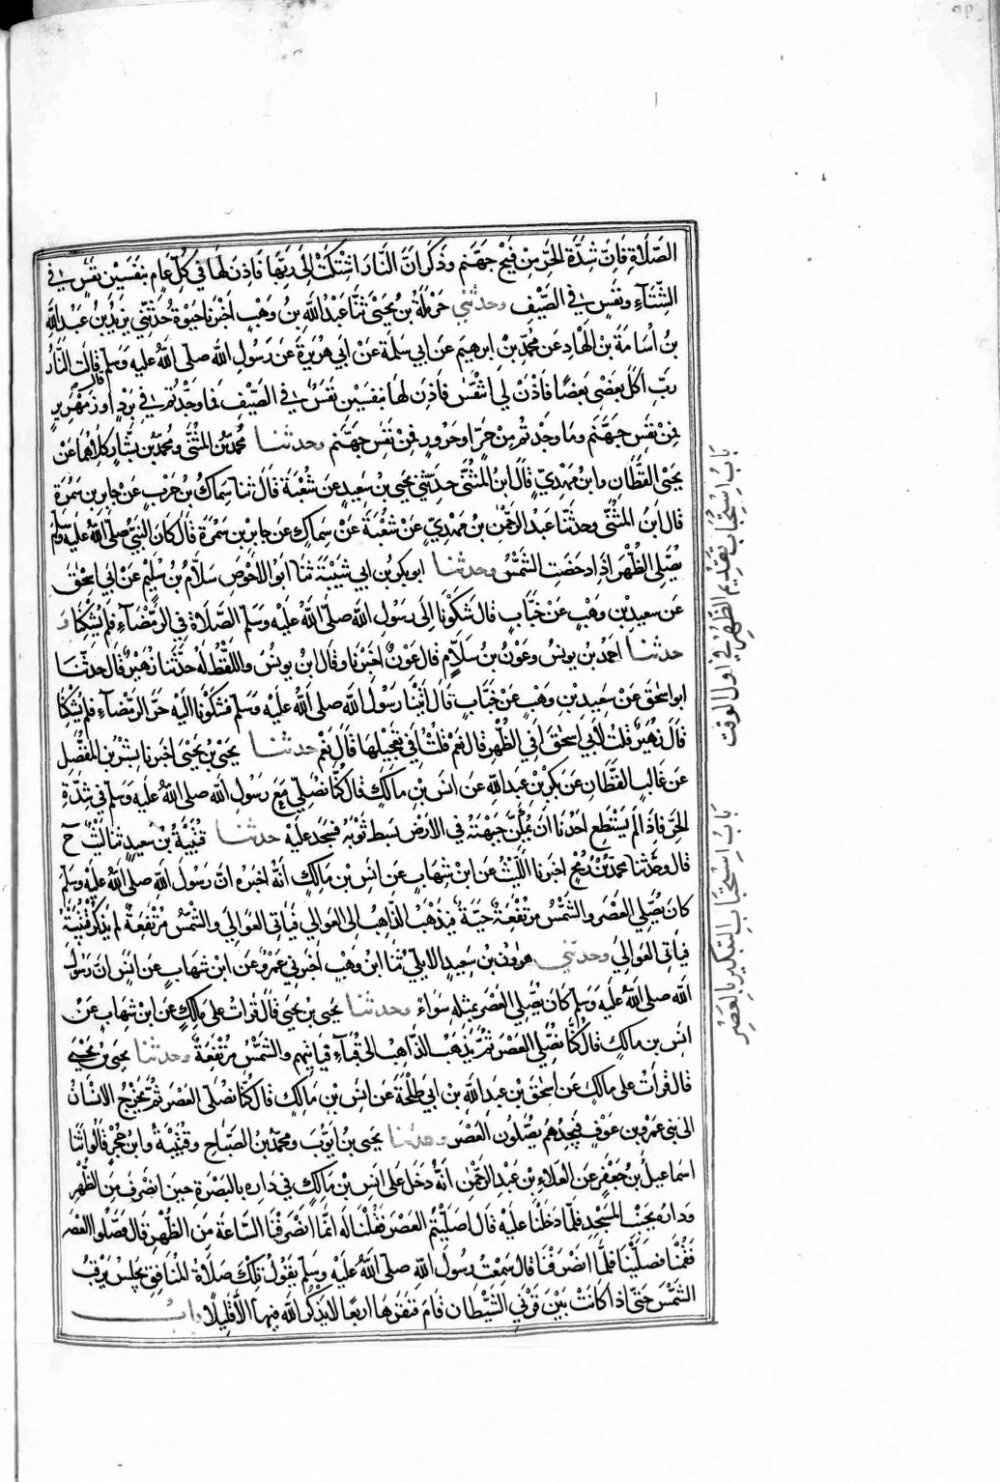 الصَّلاةِ فَاِنَّ شِدَّةَ الحَرِّ مِن فَيْحِ جَهَنَّم وذَكَرَ انَّ النَّارَ اشْتَكَتْ اِلى رَبِّهَا فَاذِنَ لَها في كُلِّ عَامٍ بنَفَسَيْن نَفَسٍ في
الشِّتَاءِ ونَفَسٍ في الصَّيْف وحدثني حَرْمَلَةُ بنُ يَحْيَى ثنا عبْدُ اللهِ بنُ وَهْبٍ اخْبرنا حَيْوَةُ حَدَّثني يزيدُ بن عبْدِ اللهِ
بنُ اُسَامَةَ بن الهَادِ عَن محمَّدِ بْنِ ابرهيمَ عَن ابي سَلَمَةَ عَنْ ابي هُرَيْرَةَ عَن رَسُولِ الله صلى اللهُ عليه وسَلم قال قالَت النَّارُ
رَبِّ اَكَلَ بعْضي بَعْضًا فَاذَنْ لي اتَنَفَّس فَاَذِنَ لهَا بنفَسَيْن نَفَسٍ في الشتاء ونفس في الصَّيْفِ فَما وَجَدْتُم مِن بَرْدٍ اوْ زَمْهَرِيرٍ
فمِنْ نفَسِ جَهَنَّم ومَا وجَدتُم مِن حَرٍّ اوحَرُورٍ فمِنْ نَفَسِ جهَنَّم وحدثنا محمَّدُ بن المُثَنَّى ومُحمَّدُ بن بشَّارٍ كلاهُما عَنْ
يَحْيَى القَطَّانِ وابنِ مَهْدِيٍّ قالَ ابنُ المُثَنَّى حدثني يحيى بن سَعِيدٍ عن شُعْبَةَ قالَ ثنا سِمَاكُ بن حَرْبٍ عَن جابِرِ بن سَمُرَةَ
قالَ ابنُ المثَنَّى وحدَثنا عبد الرَّحمنِ بن مَهْدِيٍّ عَنْ شعْبَةَ عَنْ سِمَاكٍ عَن جابِرِ بن سَمُرَةَ قالَ كانَ النَّبيُّ صلى اللهُ عليه وسلم
يُصَلِّي الظُّهْرَ اذَا دَحَضَتِ الشَّمْسُ وحدثنا ابو بكر بن ابي شَيْبَةَ ثنا ابو الاَحْوَصِ سَلاَّمُ بن سُلَيْمٍ عَنْ ابي اسْحٰقَ
عَن سعيدِ بْنِ وَهْبٍ عَنْ خَبَّابٍ قالَ شَكَوْنَا اِلى رَسُولِ الله صلى اللهُ عليْه وسَلم الصَّلاَةَ فِي الرَّمْضَاءِ فلمْ يُشْكِنَا و
حدثنا احْمَد بن يونُس وعَوْنُ بن سَلاَّمٍ قال عَوْنٌ اخْبَرنا وقَالَ ابنُ يونُسَ واللَّفْظُ لَهُ حَدَّثنا زُهَيْرٌ قالَ حدثنا
ابو اسْحٰقَ عَنْ سَعِيدِ بْنِ وَهْبٍ عَنْ خَبَّابٍ قَالَ اَتَيْنَا رَسُولَ اللهِ صلى اللهُ عليْه وَسَلم فشكَوْنَا اليْهِ حَرَّ الرَّمضَاءِ فلم يُشْكِنا
قالَ زُهَيْرٌ قلتُ لأبي اسْحٰقَ افي الظُّهْرِ قالَ نَعَمْ قُلتُ افي تعْجِيلِها قالَ نَعَمْ حدثنا يحْيَى بن يَحْيَى اخبرنا بِشْرُ بن المُفَضَّل
عَن غالبٍ القَطَّانِ عَن بكرِ بْن عبد اللهِ عَن انَسِ بْنِ مالكٍ قالَ كُنَّا نُصَلّي مَعَ رَسُولِ الله صلى اللهُ عليه وسَلم في شِدَّةِ
الحَرِّ فاِذَا لَمْ يَسْتَطِع احَدُنَا انْ يُمَكِّنَ جَبْهَتَهُ في الاَرْضِ بسَطَ ثوْبَهُ فسَجَدَ عليْهِ حدثنا قُتَيْبَةُ بن سَعِيدٍ ثنا لَيْثٌ ح
قالَ وحَدثنا محمَّد بنُ رُمْحٍ اخبرنا اللَّيْثُ عَن ابنِ شهابٍ عَن انَسِ بن مَالكٍ انَّهُ اخبَرَه انَّ رَسُولَ الله صلى اللهُ عليْه وسَلم
كانَ يُصَلِّي العَصْرَ والشَّمْسُ مُرتَفِعَةٌ حَيَّةٌ فيَذْهَبُ الذَّاهِبُ اِلى العَوالي فيَأتي العَوالي والشَّمْسُ مُرْتَفِعَةٌ لم يَذْكُرْ قُتَيْبَةُ
فيَأتي العَوالي وحدثني هرُونُ بن سَعِيدٍ الايْلي ثنا ابنُ وهْبٍ اخبرني عَمْرٌو عَن ابنِ شهابٍ عَن انَسٍ انَّ رَسُولَ
الله صلى اللهُ عليْه وسَلم كانَ يُصَلّي العَصْرَ بمثلِه سَوَاءً وحدثنا يحيى بن يحيَى قالَ قَراتُ على مَالكٍ عَن ابنِ شِهَابٍ عَنْ
انَسِ بن مَالكٍ قالَ كُنَّا نُصَلّي العَصْرَ ثُمَّ يذْهَبُ الذَّاهِبُ اِلى قُبَاءٍ فيَاتِيهِم والشَّمْسُ مُرْتَفِعَةٌ وحدثنا يحيى بن يَحْيَى
قالَ قرَأتُ على مالِكٍ عَن اسْحٰقَ بن عبد اللهِ بنِ ابي طَلْحَةَ عَن انَسِ بْنِ مَالكٍ قالَ كُنَّا نُصَلّي العَصْرَ ثُمَّ يَخْرُجُ الانْسَانُ
الى بَني عَمْرِو بن عَوْفٍ فيَجِدُهُم يُصَلُّونَ العَصْرَ وحدثنا يحيى بنُ ايُّوبَ ومحمَّد بنُ الصَّبَّاحِ وقُتَيْبَةُ وابنُ حُجْرٍ قالُوا ثنا
اسْماعِيلُ بنُ جَعْفَرٍ عَن العَلاءِ بن عبد الرَّحْمنِ انَّهُ دَخَلَ على انَسِ بن مَالكٍ في دَارِه بالبَصْرَةِ حِينَ انْصَرفَ مِن الظُّهْرِ
ودَارُه بجَنْبِ المسْجِدِ فلمَّا دَخَلْنَا عليْهِ قالَ اصَلَّيْتُم العَصْرَ فقُلْنَا لَه انمَّا انصَرَفْنَا السَّاعَةَ مِن الظُّهْرِ قالَ فَصَلُّوا العصْرَ
فَقُمْنَا فصَلَّيْنَا فلمَّا انْصَرفْنَا قالَ سَمِعتُ رسُولَ الله صلى اللهُ عليْه وسَلم يقولُ تلْكَ صَلاَةُ المُنَافِقِ يجْلِسُ يَرْقُبُ
الشَّمْسَ حَتّى اِذا كانَتْ بَيْنَ قرْنَي الشَّيْطانِ قامَ فنَقَرَهَا ارْبعًا لا يَذْكُرُ الله فيهَا الاَّ قلِيلاً باب
بَابُ اسْتِحْبَابِ تَقْدِيمِ الظُّهْرِ في اَوَّلِ الوَقت
بَابُ اسْتِحْبَابِ التَّبْكِيرِ بالعَصْرِ